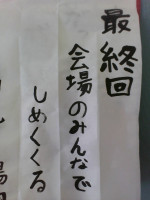 最終回
会場のみんなで
しめくくる